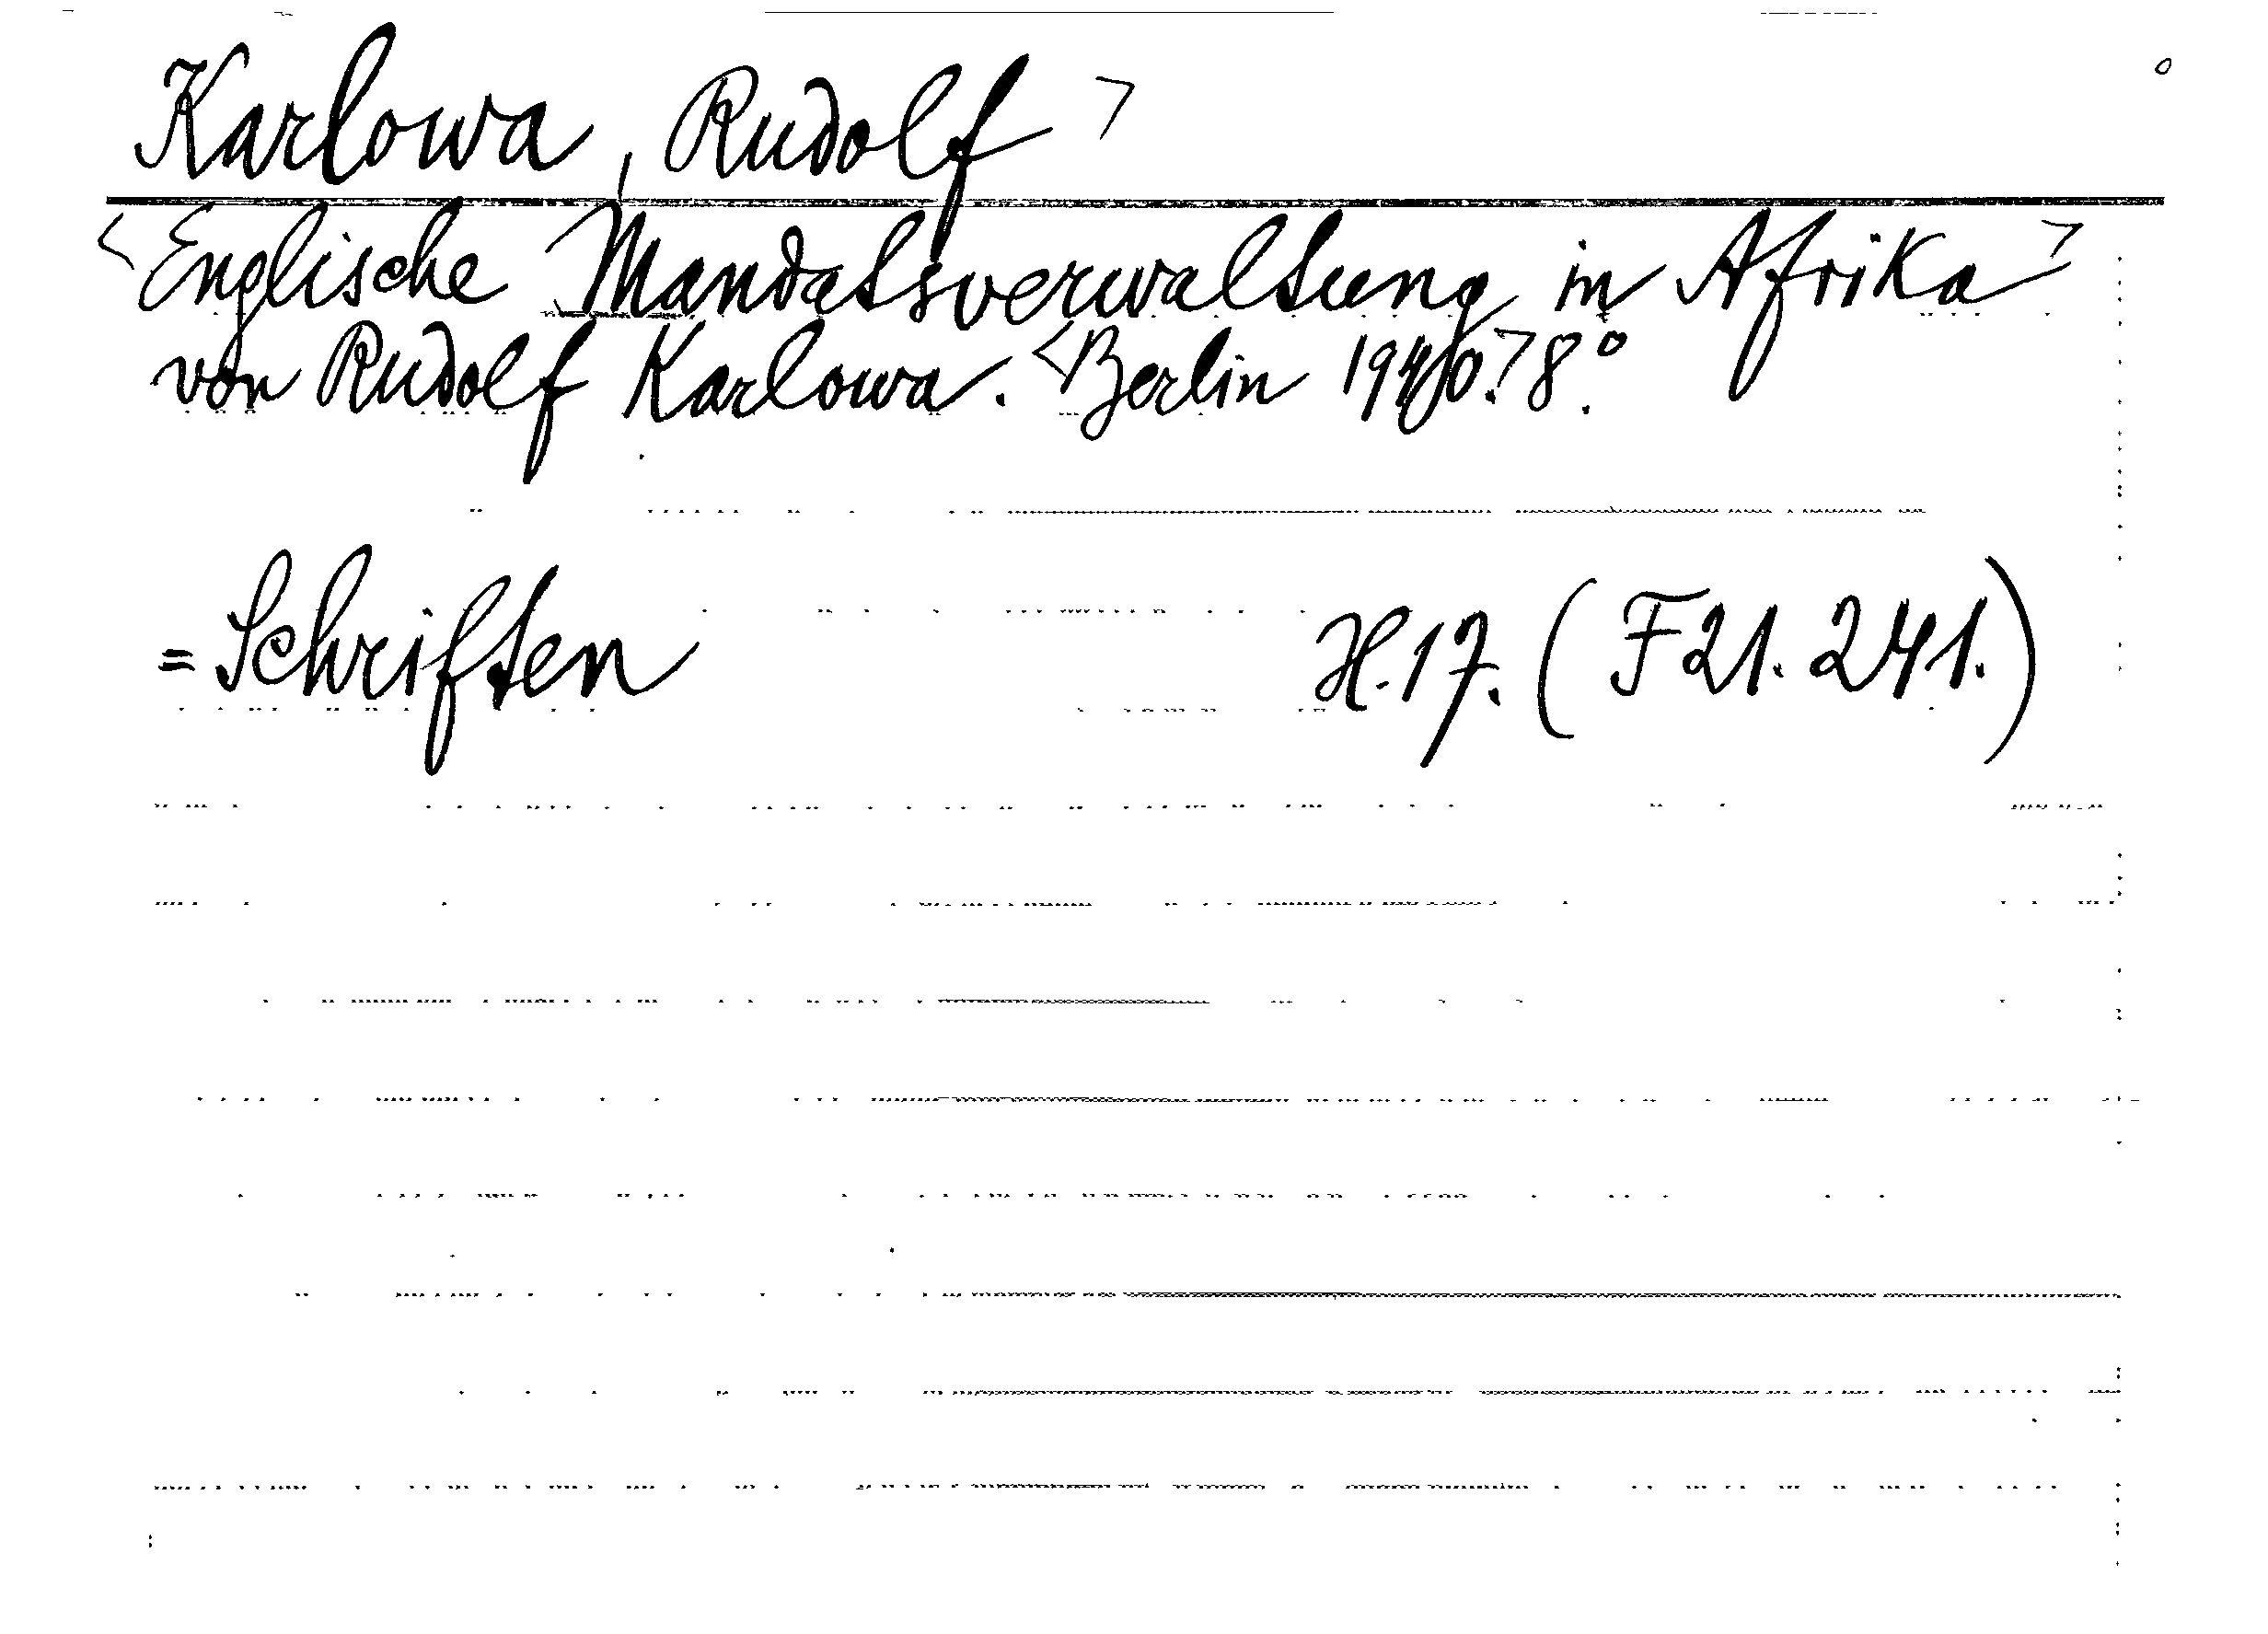 Karlowa, Rudolf >
<Englische Mandatsverwaltung in Afrika>
von Rudolf Karlowa. <Berlin 1940.> 8°.
= Schriften H. 17. (F 21. 241.)